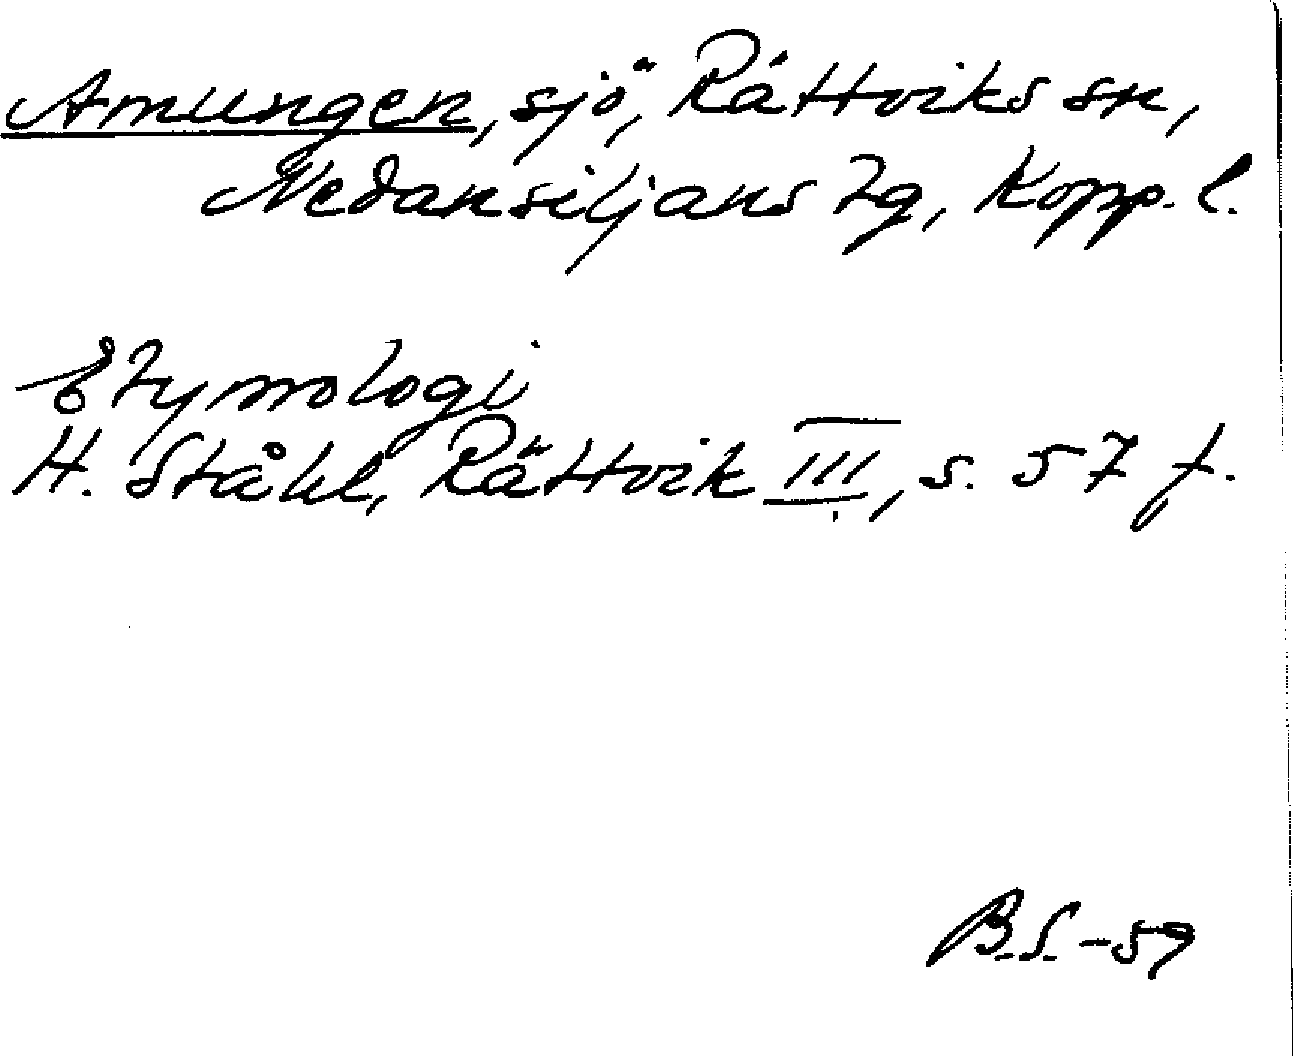 Amungen, sjö, Rättviks sn,
Nedansiljans tg, Kopp. l.
Etymologi
H. Ståhl, Rättvik III, s. 57 f.
B.S. -59